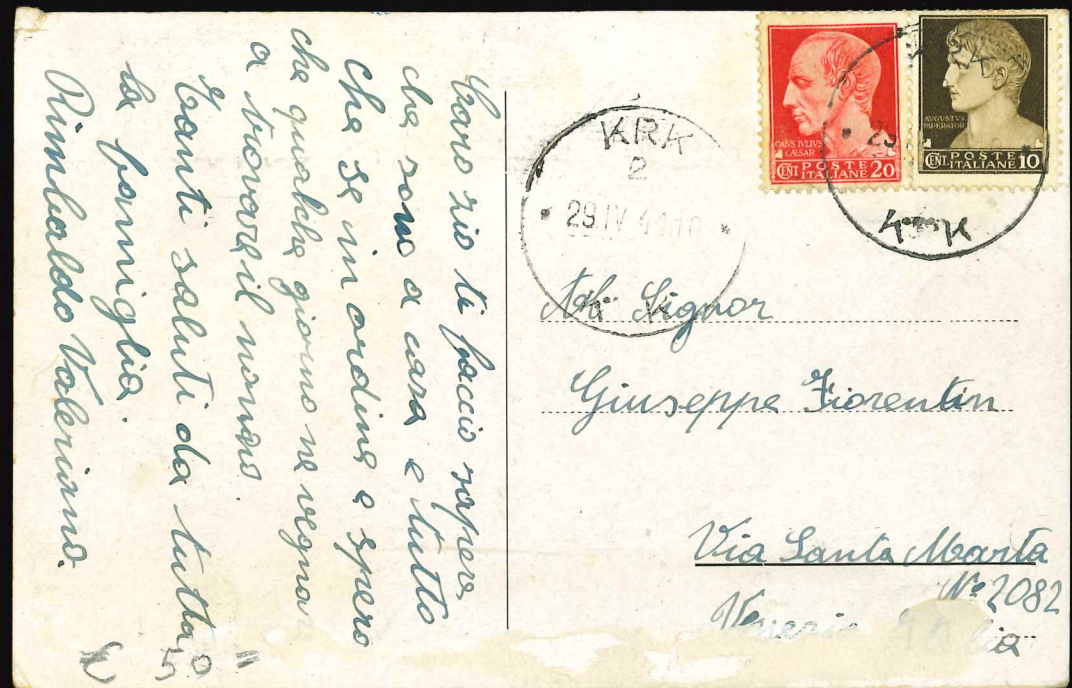 Caro zio ti faccio sapere
che sono a casa e tutto
che se in ordine e spero
che qualche giorno ne vegnar
a trovare il nonno.
Tanti saluti da tutta
la famiglia.
Rimbaldo Valeriano.
50 "
KRK
2
29 IV 41 10
CAIVS IVLIVS
CÆSAR
CENT. POSTE
ITALIANE 20
AVGVSTVS
IMPERATOR
CENT. POSTE
ITALIANE 10
Al Signor
Giuseppe Fiorentin
Via Santa Marta
No 2082